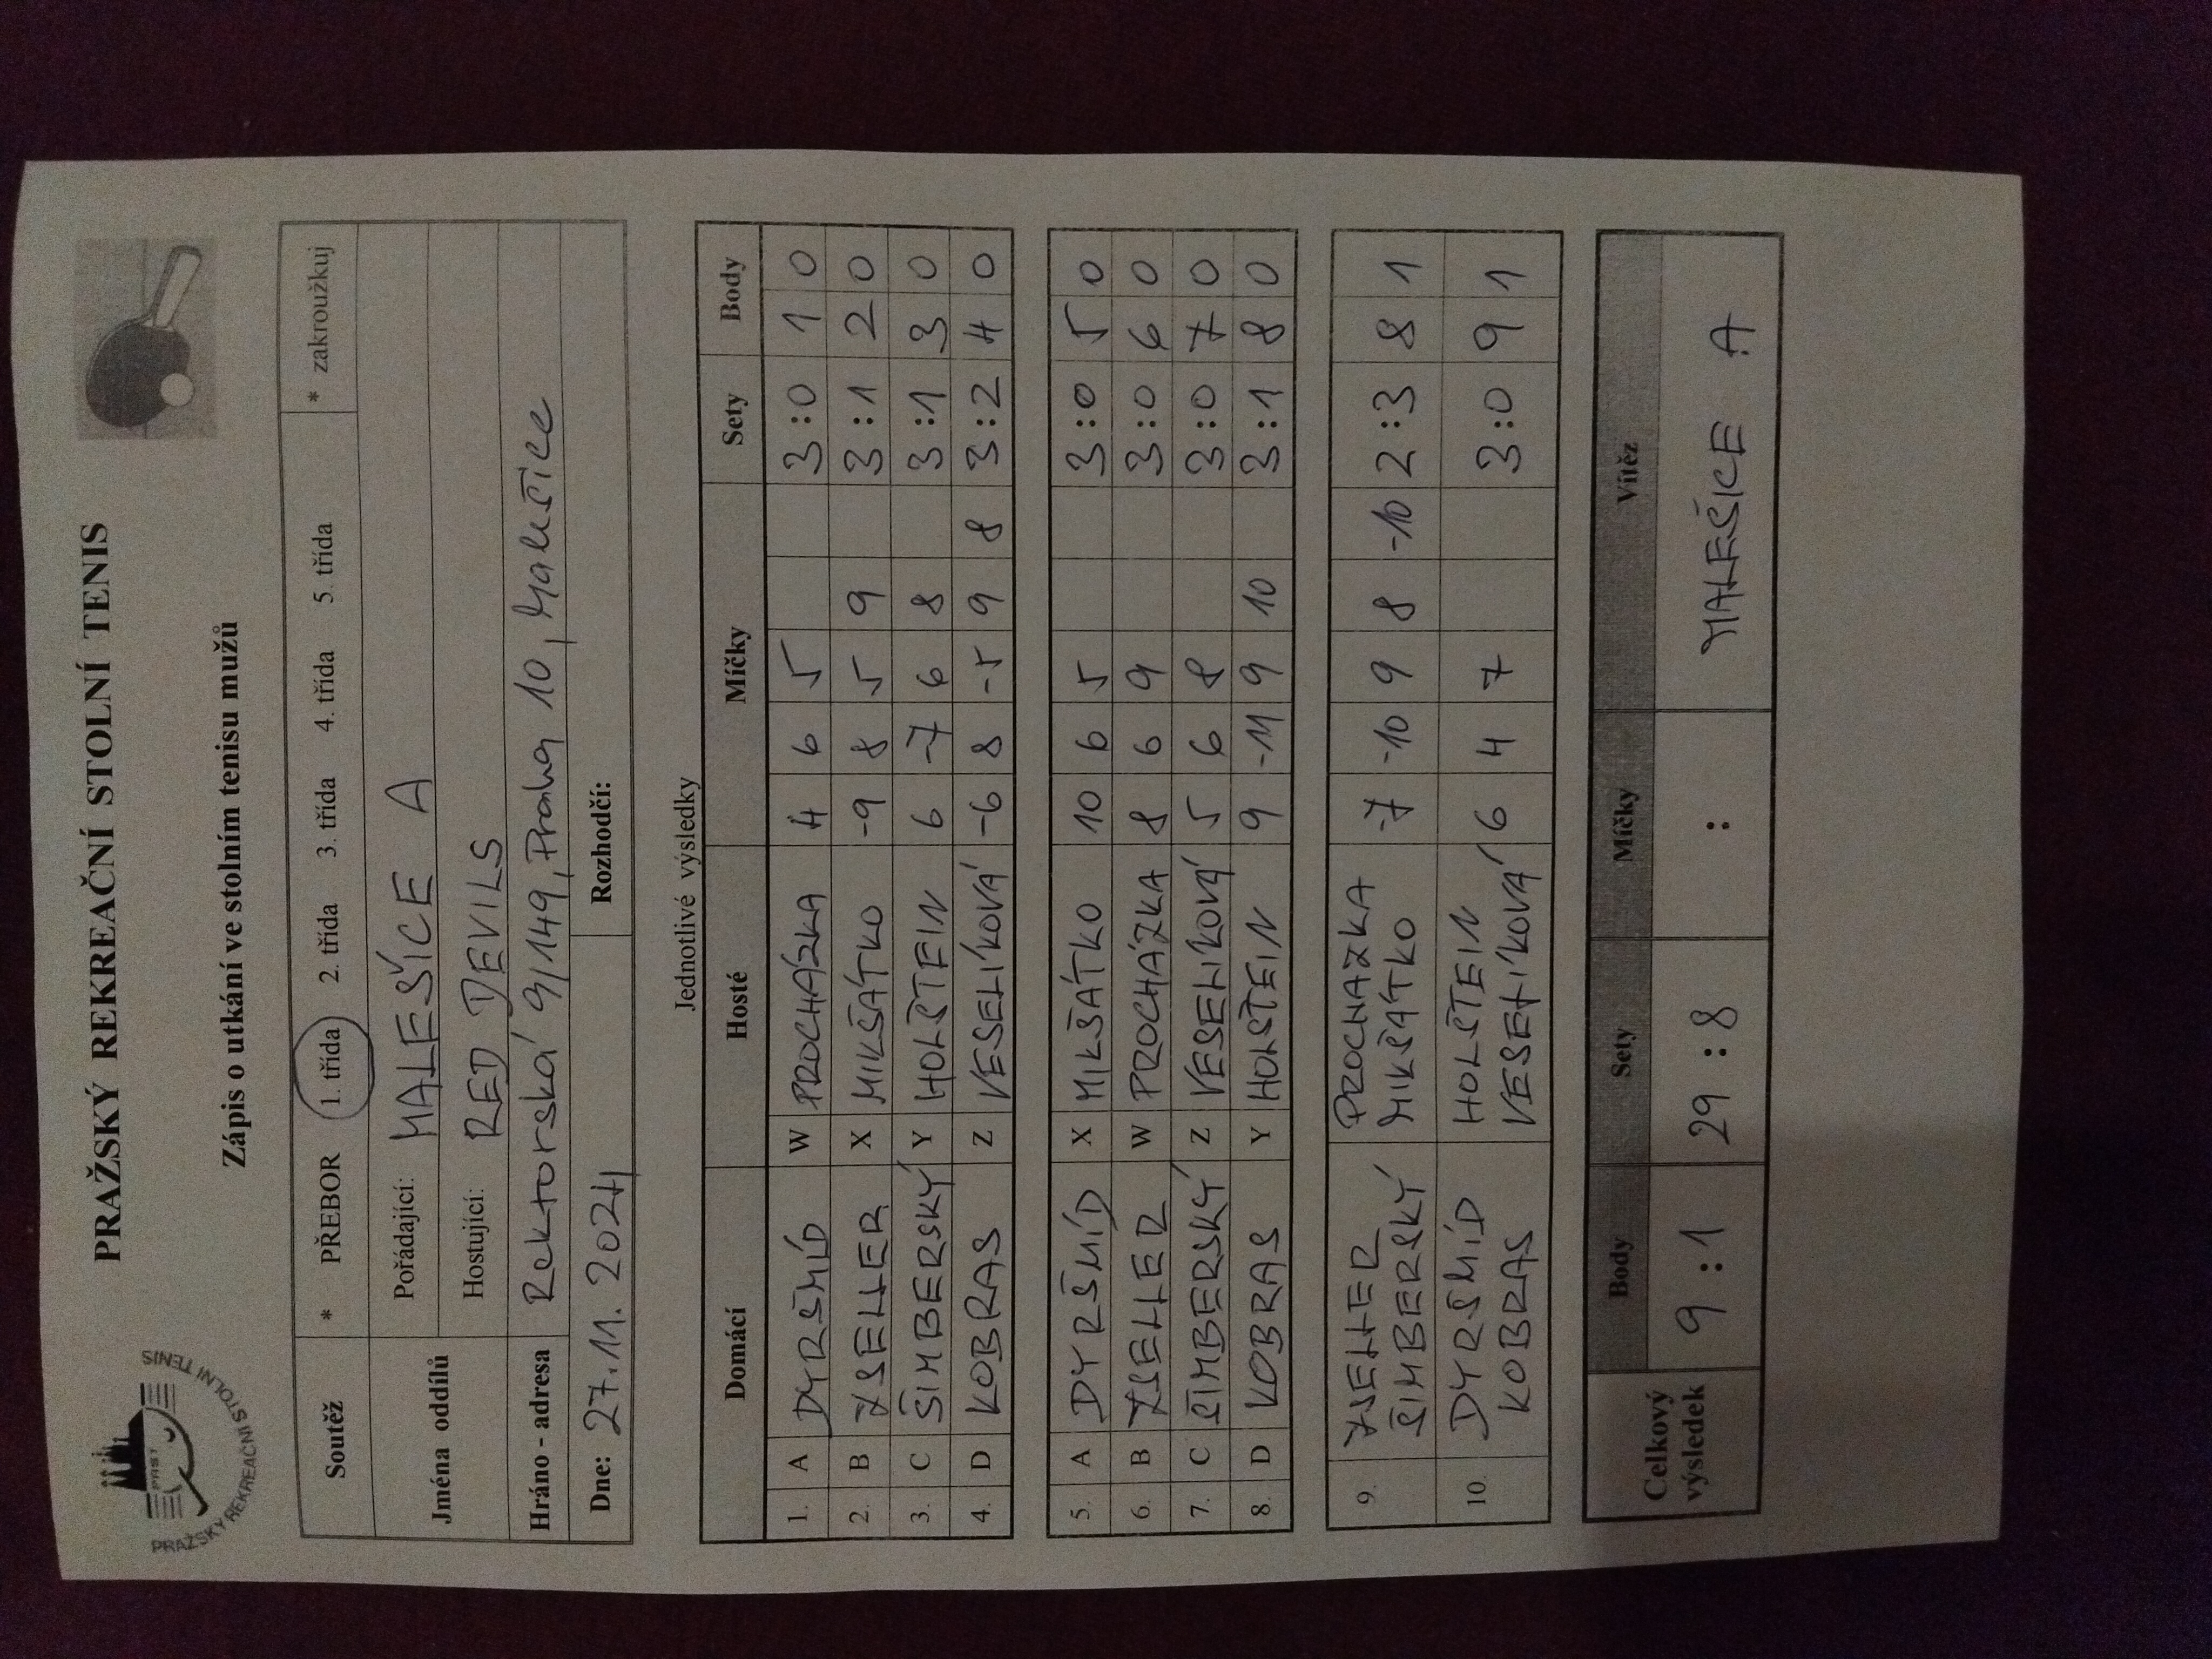 PRAŽSKÝ REKREAČNÍ STOLNÍ TENIS
PRST
PRAŽSKÝ REKREAČNÍ STOLNÍ TENIS
Zápis o utkání ve stolním tenisu mužů
Soutěž * PŘEBOR 1. třída 2. třída 3. třída 4. třída 5. třída * zakroužkuj
Jména oddílů Pořádající: MALEŠICE A
Hostující: RED DEVILS
Hráno - adresa Rektorská 9/149, Praha 10, Malešice
Dne: 27.11.2024 Rozhodčí:
Jednotlivé výsledky
Domácí Hosté Míčky Sety Body
1. A DYRŠMÍD W PROCHÁZKA 4 6 5 3:0 1 0
2. B ZSELLER X MIKŠÁTKO -9 8 5 9 3:1 2 0
3. C ŠIMBERSKÝ Y HOLŠTEIN 6 -7 6 8 3:1 3 0
4. D KOBRAS Z VESELÍKOVÁ -6 8 -5 9 8 3:2 4 0
5. A DYRŠMÍD X MIKŠÁTKO 10 6 5 3:0 5 0
6. B ZSELLER W PROCHÁZKA 8 6 9 3:0 6 0
7. C ŠIMBERSKÝ Z VESELÍKOVÁ 5 6 8 3:0 7 0
8. D KOBRAS Y HOLŠTEIN 9 -11 9 10 3:1 8 0
9. ZSELLER PROCHAZKA -7 -10 9 8 -10 2:3 8 1
ŠIMBERSKÝ MIKŠÁTKO
10. DYRŠMÍD HOLŠTEIN 6 4 7 3:0 9 1
KOBRAS VESELÍKOVÁ
Celkový výsledek Body Sety Míčky Vítěz
9:1 29:8 : MALEŠICE A